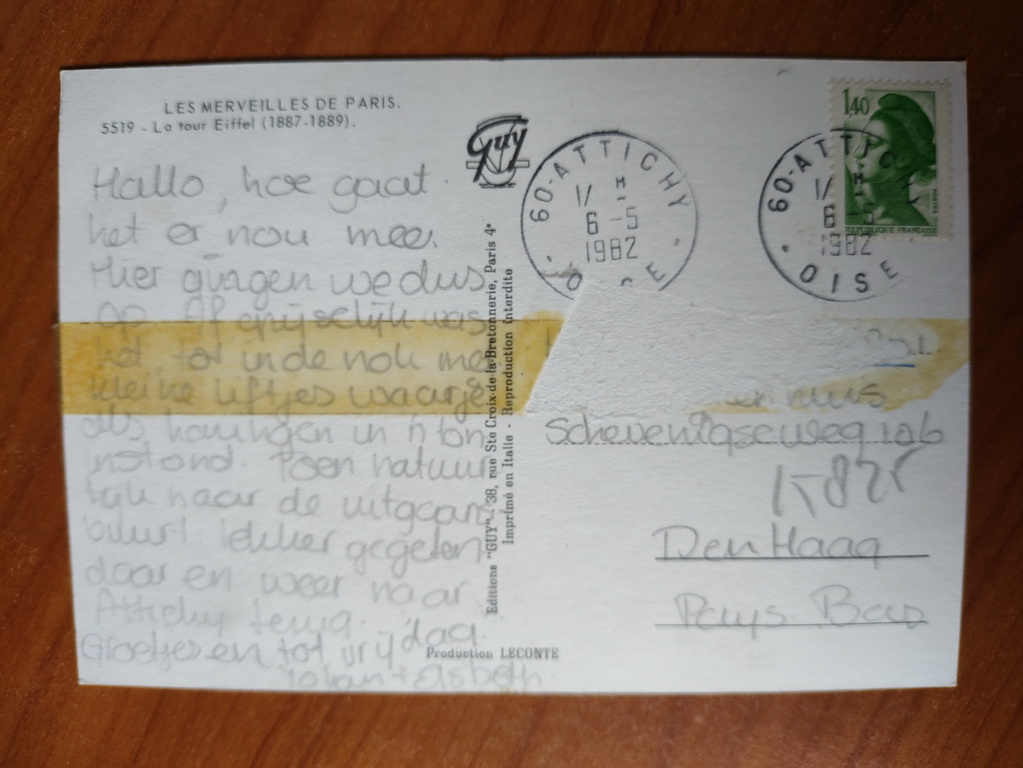 LES MERVEILLES DE PARIS.
5519 - La tour Eiffel (1887-1889).
Guy
Hallo, hoe gaat
het er nou mee.
Hier gingen we dus
op. Afgrijselijk was
het. tot in de nok me
kleine liftjes waar je
als haringen in 'n ton
in stond. Toen natuur
lijk naar de uitgaans
buurt. lekker gegeten
daar en weer naar
Attichy terug.
Groetjes en tot vrijdag.
Johan + Elsbeth
Editions "GUY" - 38, rue Ste Croix-de-la-Bretonnerie, Paris 4e
Imprimé en Italie - Reproduction interdite
Production LECONTE
60-ATTICHY
17 H
6 - 5
1982
OISE
60-ATTICHY
17 H
6 - 5
1982
OISE
1,40
REPUBLIQUE FRANCAISE
Scheveningseweg 106
Den Haag
Pays Bas